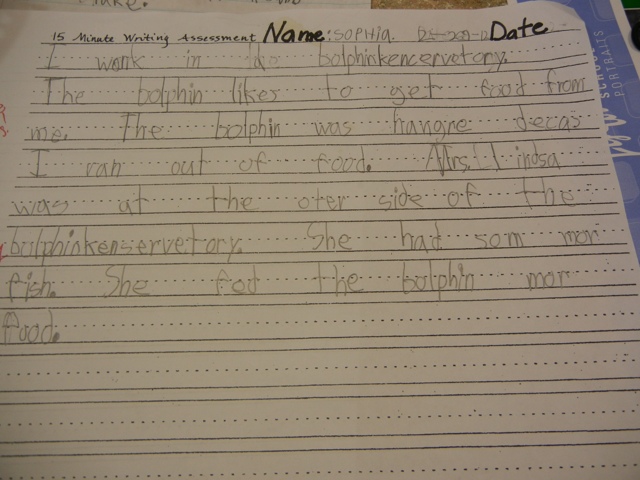 15 Minute Writing Assessment Name: SOPHIA. Date
I work in do bolphinkencervetory.
The bolphin likes to get food from
me. The bolphin was hangre decas
I ran out of food. Mrs. Lindsa
was at the oter side of the
bolphinkenservetory. She had som mor
fish. She fed the bolphin mor
food.
PORTRAITS